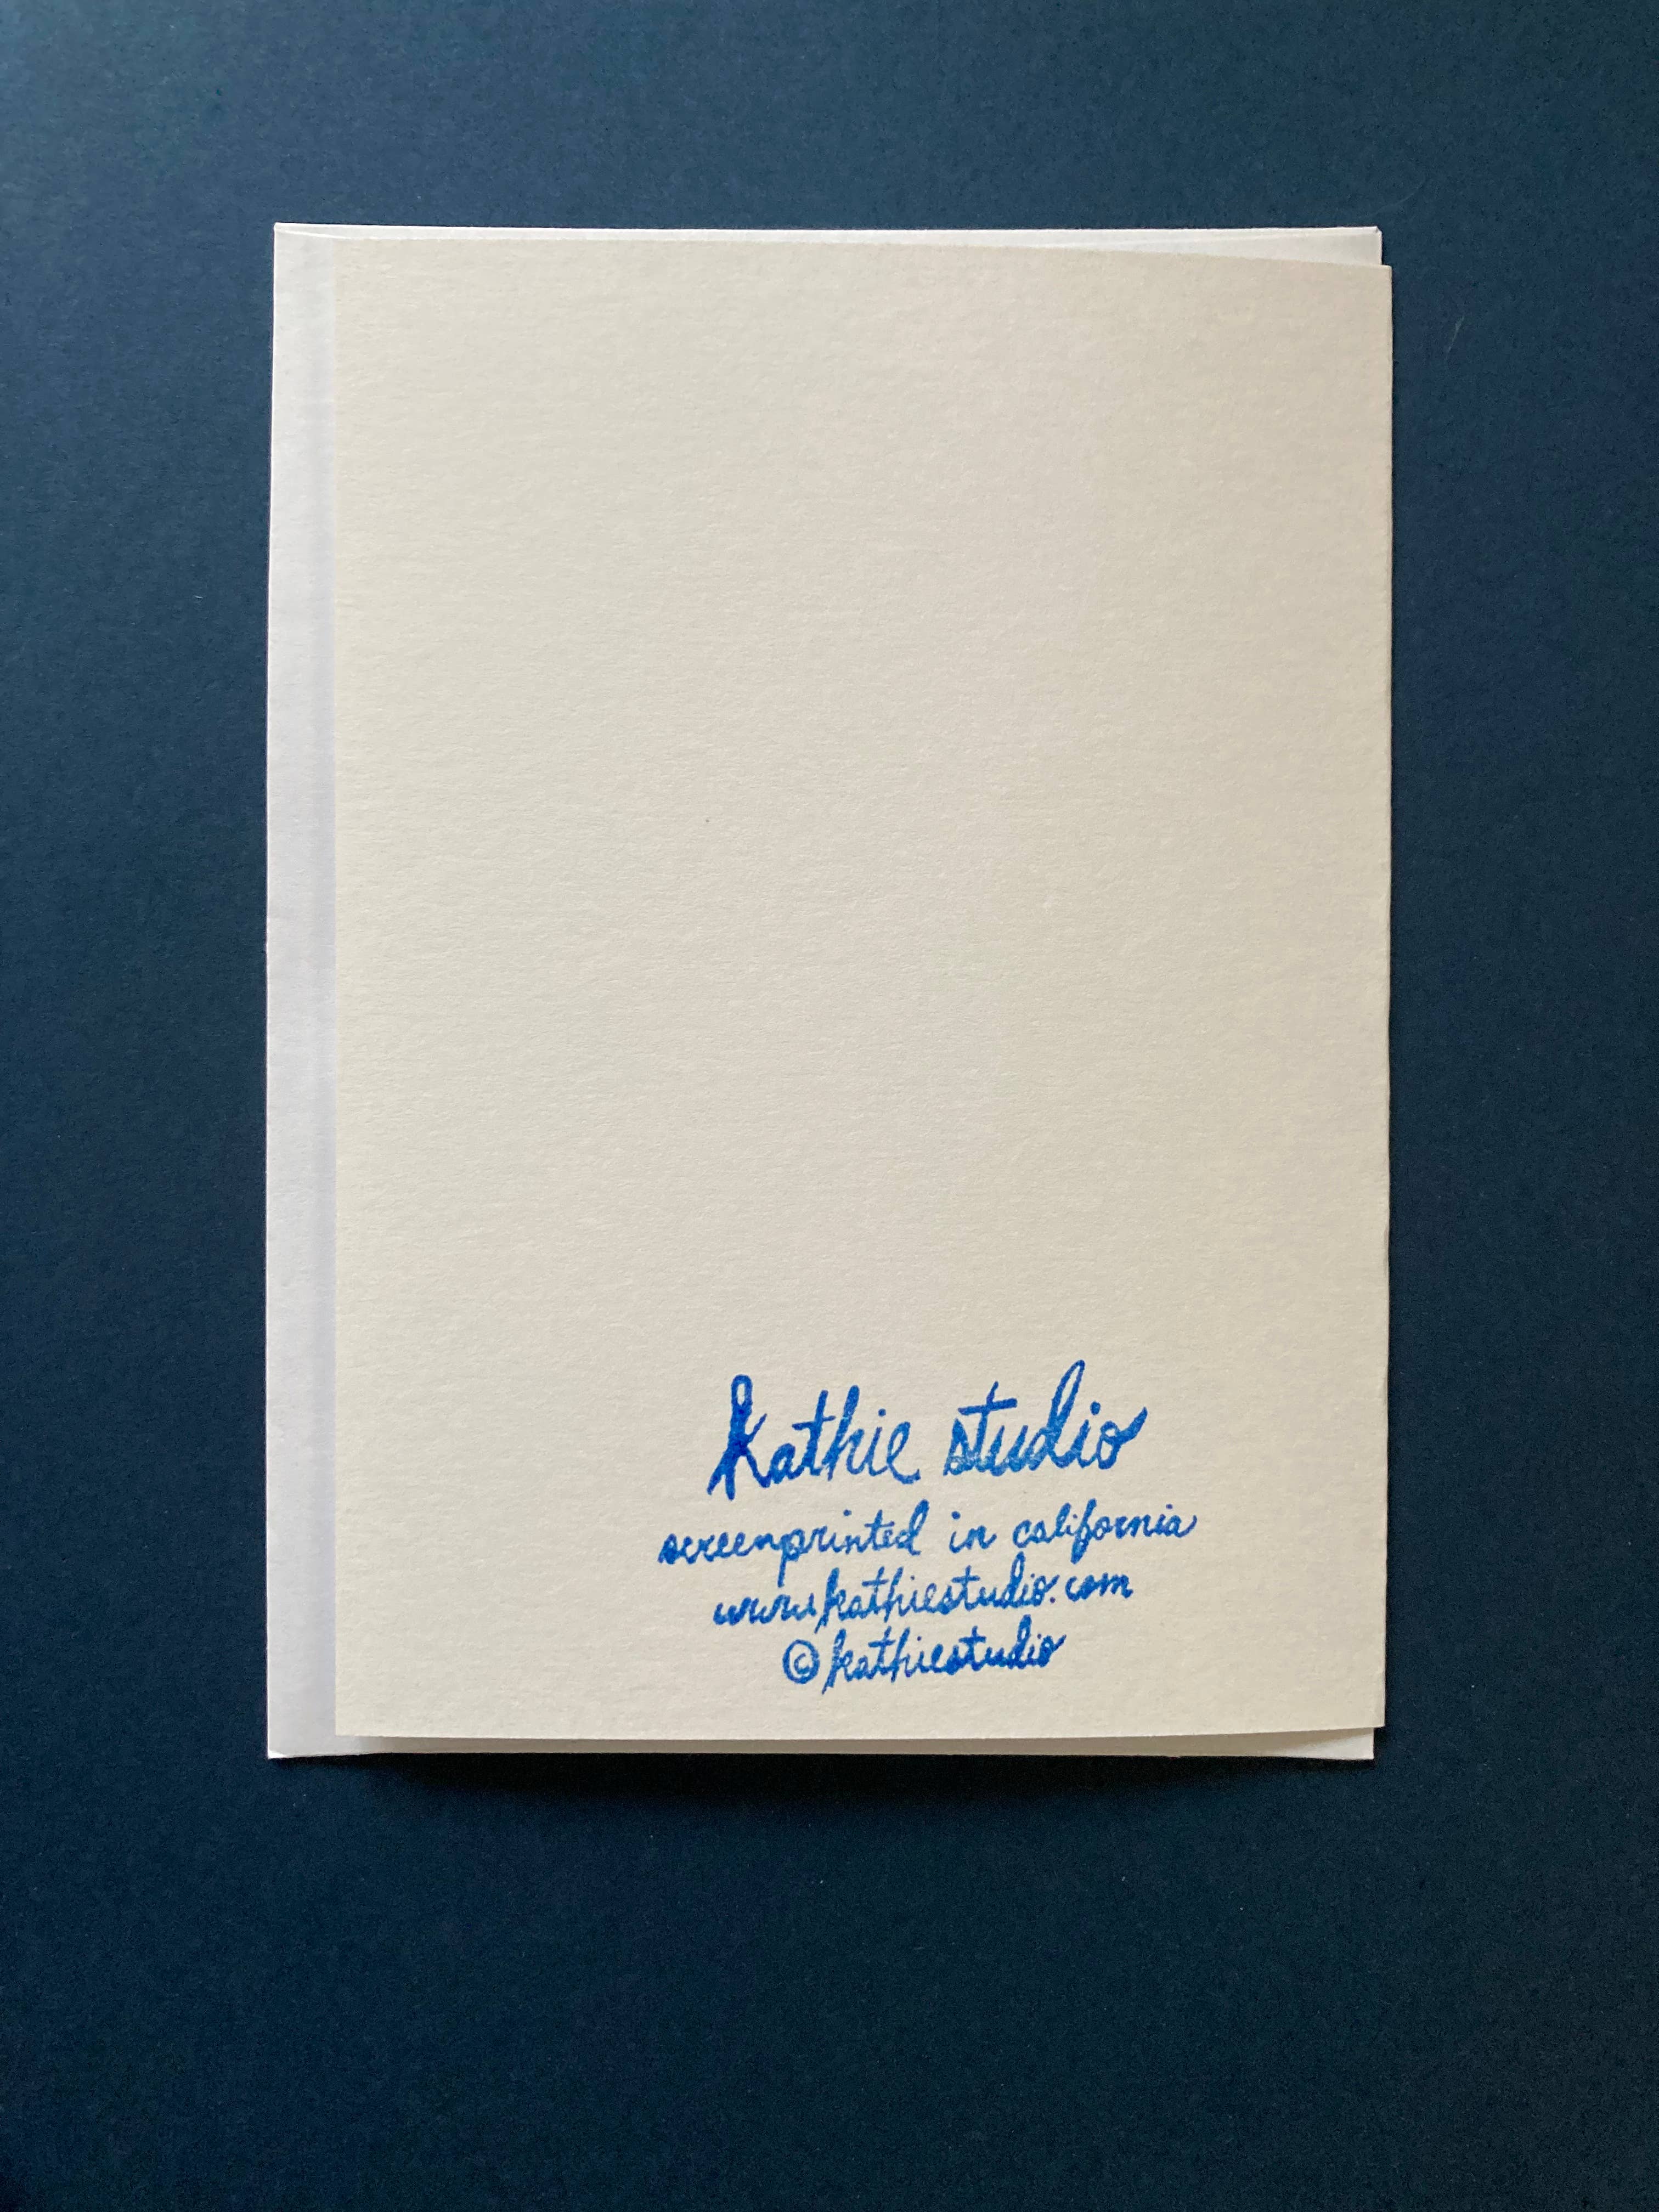 Kathie studio
screenprinted in california
www.kathiestudio.com
©kathiestudio